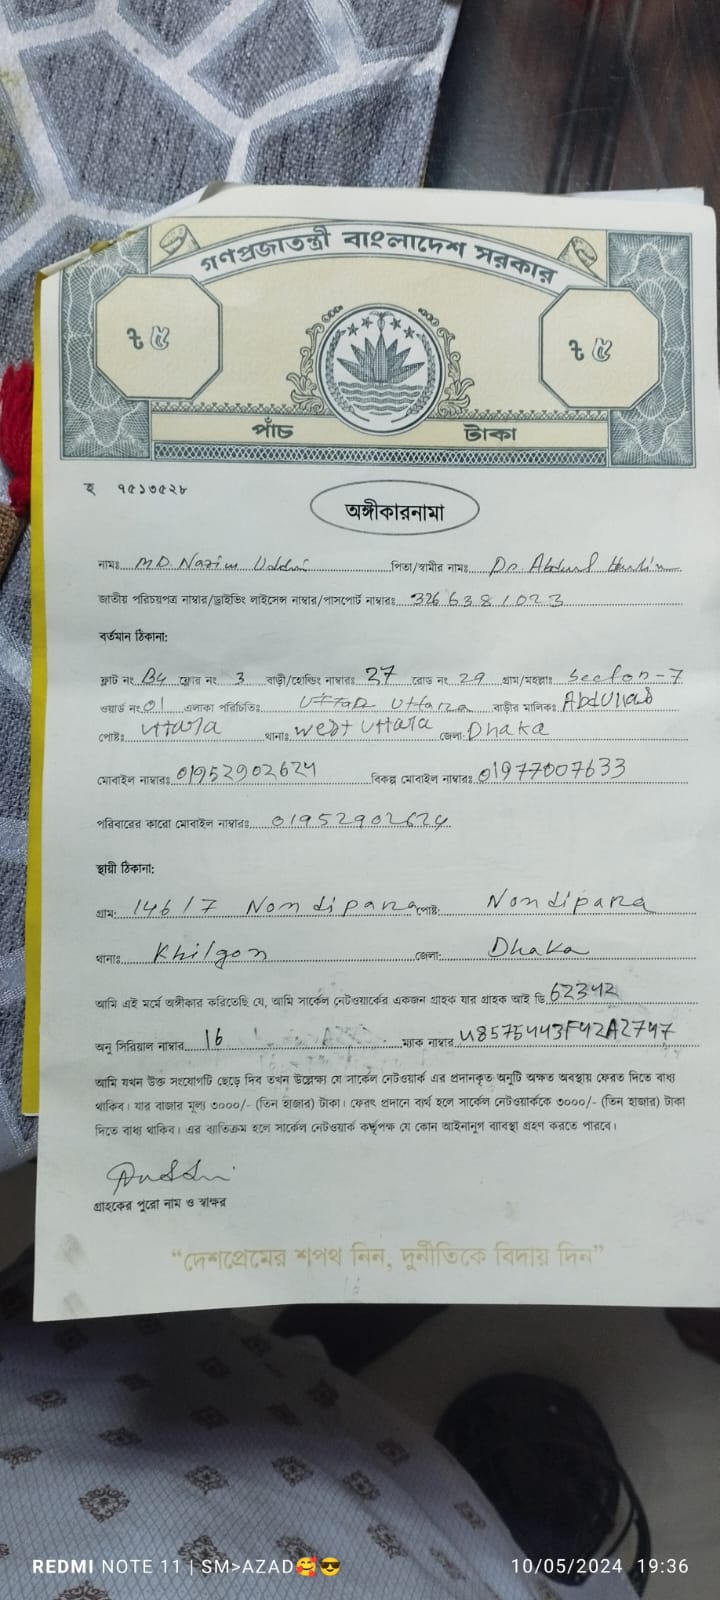 গণপ্রজাতন্ত্রী বাংলাদেশ সরকার
৳ ৫ ৳ ৫
পাঁচ টাকা
হ ৭৫১৩৫২৮
অঙ্গীকারনামা
নামঃ MD. Nazim Uddin পিতা/স্বামীর নামঃ Dr. Abdul
জাতীয় পরিচয়পত্র নাম্বার/ড্রাইভিং লাইসেন্স নাম্বার/পাসপোর্ট নাম্বারঃ 3266381023
বর্তমান ঠিকানা:
ফ্লাট নং B4 ফ্লোর নং 3 বাড়ী/হোল্ডিং নাম্বারঃ 27 রোড নং 29 গ্রাম/মহল্লাঃ Secton-7
ওয়ার্ড নং 01 এলাকা পরিচিতিঃ UTTAR Uttara বাড়ীর মালিকঃ
পোষ্টঃ Uttara থানাঃ west Uttara জেলা: Dhaka
মোবাইল নাম্বারঃ 01952902624 বিকল্প মোবাইল নাম্বারঃ 01977007633
পরিবারের কারো মোবাইল নাম্বারঃ 01952902624
স্থায়ী ঠিকানা:
গ্রাম: 146/7 Nondipara পোষ্ট: Nondipara
থানাঃ Khilgon জেলা: Dhaka
আমি এই মর্মে অঙ্গীকার করিতেছি যে, আমি সার্কেল নেটওয়ার্কের একজন গ্রাহক যার গ্রাহক আই ডি 62342
অনু সিরিয়াল নাম্বার 16 ম্যাক নাম্বার 48575443F42A2747
আমি যখন উক্ত সংযোগটি ছেড়ে দিব তখন উল্লেক্ষ্য যে সার্কেল নেটওয়ার্ক এর প্রদানকৃত অনুটি অক্ষত অবস্থায় ফেরত দিতে বাধ্য
থাকিব। যার বাজার মূল্য ৩০০০/- (তিন হাজার) টাকা। ফেরৎ প্রদানে ব্যর্থ হলে সার্কেল নেটওয়ার্ককে ৩০০০/- (তিন হাজার) টাকা
দিতে বাধ্য থাকিব। এর ব্যতিক্রম হলে সার্কেল নেটওয়ার্ক কর্তৃপক্ষ যে কোন আইনানুগ ব্যাবস্থা গ্রহণ করতে পারবে।
গ্রাহকের পুরো নাম ও স্বাক্ষর
“দেশপ্রেমের শপথ নিন, দুর্নীতিকে বিদায় দিন”
REDMI NOTE 11 | SM>AZAD🥰😎 10/05/2024 19:36